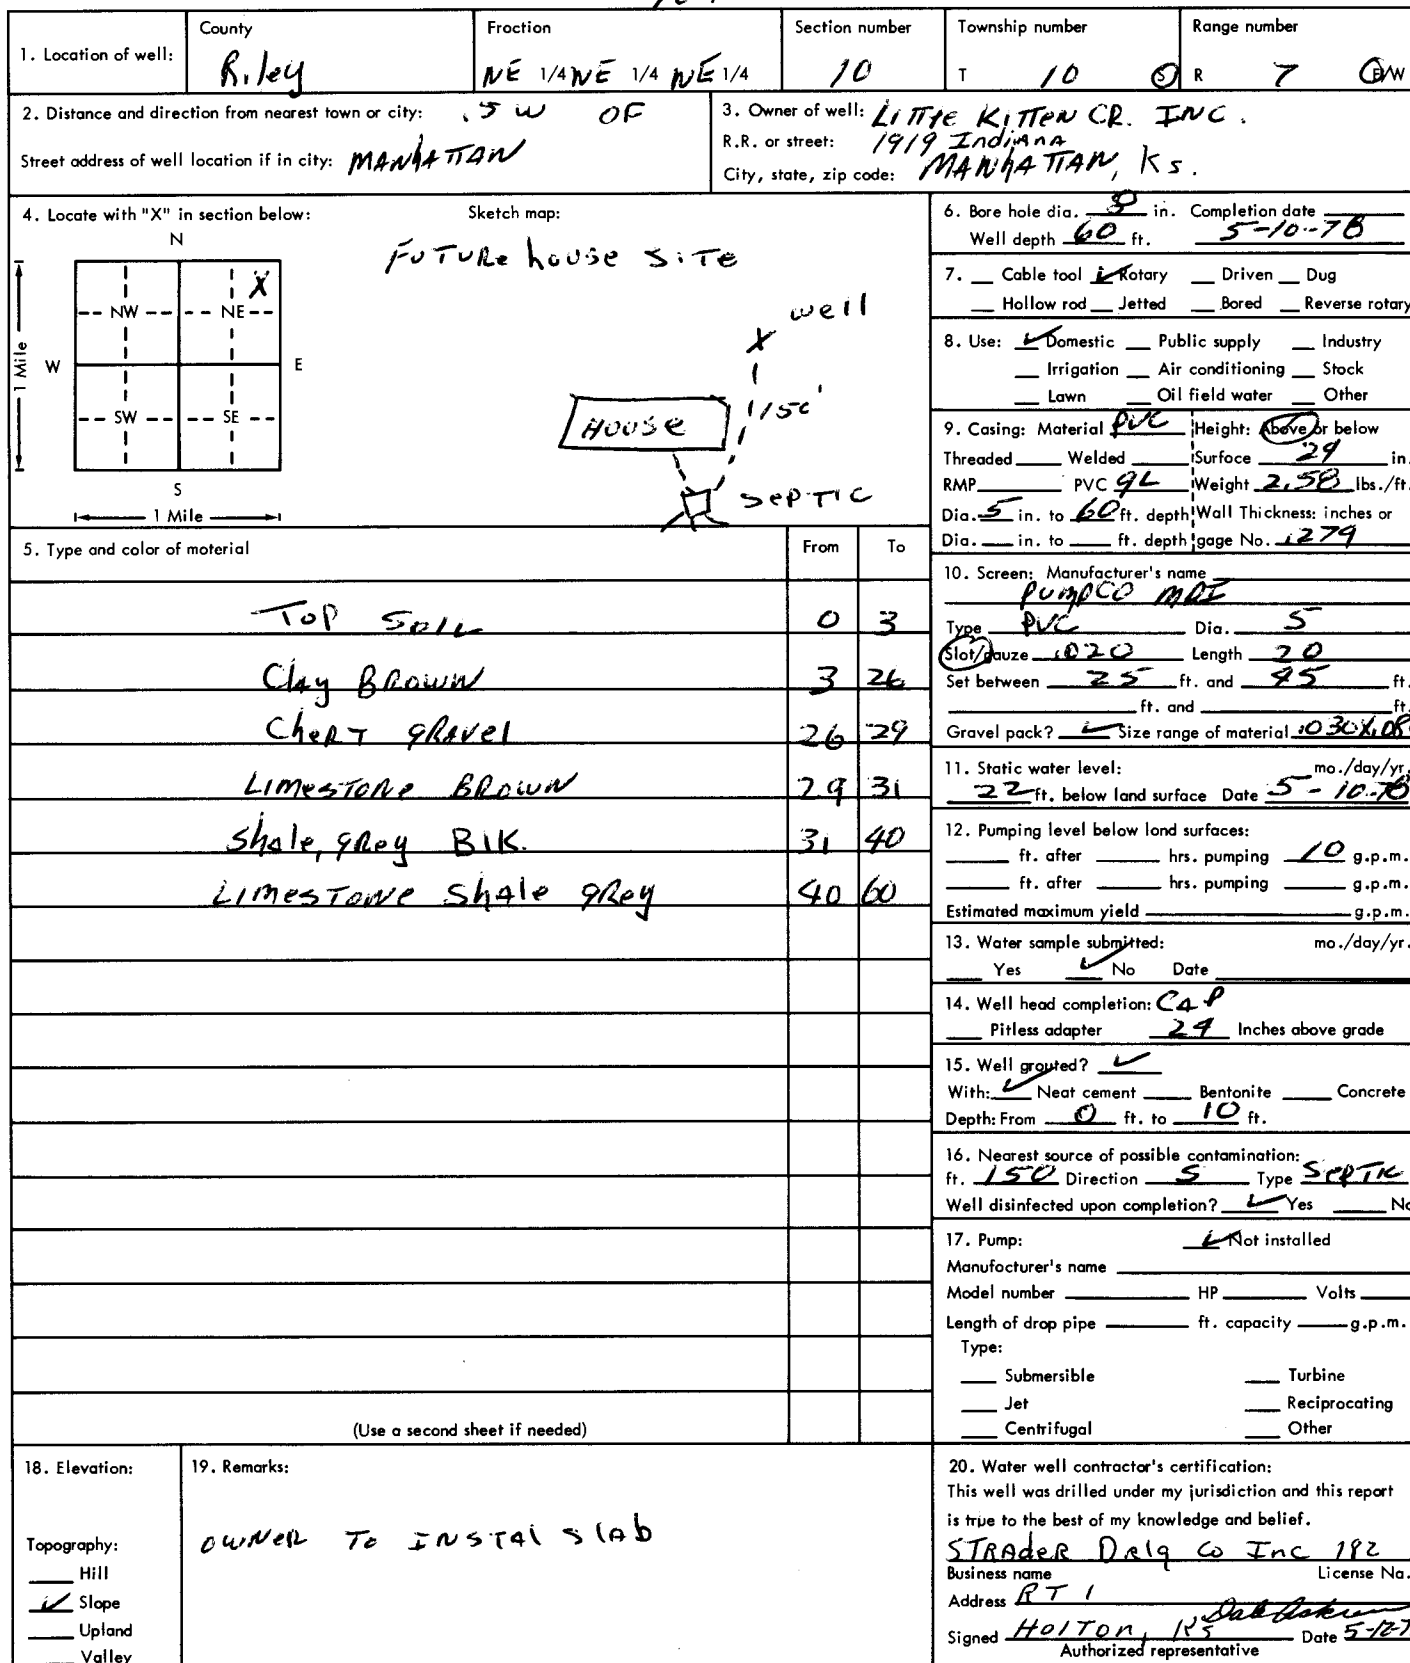 County Fraction Section number Township number Range number
1. Location of well: Riley NE 1/4 NE 1/4 NE 1/4 10 T 10 S R 7 E/W
2. Distance and direction from nearest town or city: .5 W OF
Street address of well location if in city: MANHATTAN
3. Owner of well: LITTLE KITTEN CR. INC.
R.R. or street: 1919 Indiana
City, state, zip code: MANHATTAN, Ks.
4. Locate with "X" in section below: Sketch map:
N
NW NE X
W E
SW SE
S
1 Mile
1 Mile
FUTURE house SITE
well
X
150'
HOUSE
SEPTIC
5. Type and color of material From To
TOP SOIL 0 3
Clay BROWN 3 26
CheRT gRavel 26 29
LIMESTONE BROWN 29 31
Shale, gRey BlK. 31 40
LIMESTONE ShAle gRey 40 60
(Use a second sheet if needed)
6. Bore hole dia. in. Completion date
Well depth 60 ft. 5-10-78
7. Cable tool ✓ Rotary Driven Dug
Hollow rod Jetted Bored Reverse rotary
8. Use: ✓ Domestic Public supply Industry
Irrigation Air conditioning Stock
Lawn Oil field water Other
9. Casing: Material PVC Height: Above or below
Threaded Welded Surface 24 in.
RMP PVC GL Weight 2.58 lbs./ft.
Dia. 5 in. to 60 ft. depth Wall Thickness: inches or
Dia. in. to ft. depth gage No. .279
10. Screen: Manufacturer's name
PUMPCO
Type PVC Dia. 5
Slot/gauze .020 Length 20
Set between 25 ft. and 45 ft.
ft. and ft.
Gravel pack? ✓ Size range of material .030X.08
11. Static water level: mo./day/yr.
22 ft. below land surface Date 5-10-78
12. Pumping level below land surfaces:
ft. after hrs. pumping 10 g.p.m.
ft. after hrs. pumping g.p.m.
Estimated maximum yield g.p.m.
13. Water sample submitted: mo./day/yr.
Yes ✓ No Date
14. Well head completion: CAP
Pitless adapter 24 Inches above grade
15. Well grouted? ✓
With: ✓ Neat cement Bentonite Concrete
Depth: From 0 ft. to 10 ft.
16. Nearest source of possible contamination:
ft. 150 Direction S Type SEPTIC
Well disinfected upon completion? ✓ Yes No
17. Pump: ✓ Not installed
Manufacturer's name
Model number HP Volts
Length of drop pipe ft. capacity g.p.m.
Type:
Submersible Turbine
Jet Reciprocating
Centrifugal Other
18. Elevation:
Topography:
Hill
✓ Slope
Upland
Valley
19. Remarks:
OWNER TO INSTAL SLAB
20. Water well contractor's certification:
This well was drilled under my jurisdiction and this report
is true to the best of my knowledge and belief.
STRADER DRLG CO Inc 182
Business name License No.
Address RT 1
Signed HOLTON, KS Date 5-12-7
Authorized representative